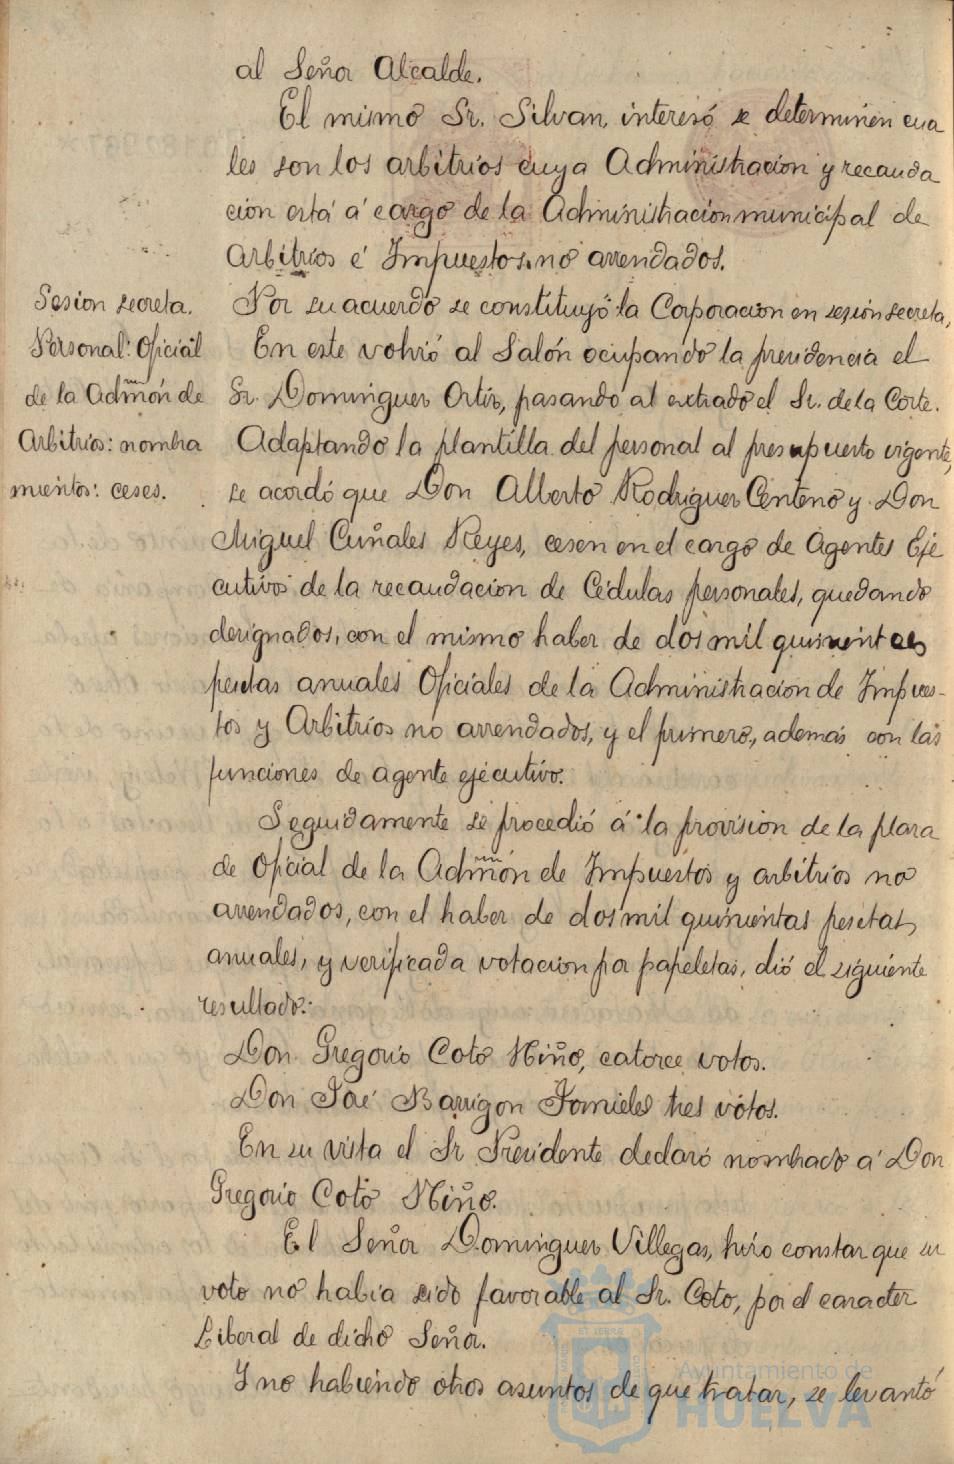 al Señor Alcalde.
El mismo Sr. Silvan, interesó se determinen cua
les son los arbitrios cuya Administracion y recauda
cion está á cargo de la Administracion municipal de
Arbitrios é Impuestos no arrendados.
Sesion secreta.
Por su acuerdo se constituyó la Corporacion en sesión secreta,
Personal: Oficial
de la Admón de
Arbitrios: nombra
mientos: ceses.
En este volvió al Salón ocupando la presidencia el
Sr. Dominguez Ortiz, pasando al extrado el Sr. de la Corte.
Adaptando la plantilla del personal al presupuesto vigente,
se acordó que Don Alberto Rodriguez Centeno y Don
Miguel Cuñales Reyes, cesen en el cargo de Agentes Eje
cutivos de la recaudacion de Cédulas personales, quedando
designados, con el mismo haber de dos mil quinientas
pesetas anuales Oficiales de la Administracion de Impues-
tos y Arbitrios no arrendados, y el primero, además con las
funciones de agente ejecutivo.
Seguidamente se procedió á la provision de la plaza
de Oficial de la Admón de Impuestos y arbitrios no
arrendados, con el haber de dos mil quinientas pesetas
anuales, y verificada votacion por papeletas, dió el siguiente
resultado:
Don Gregorio Coto Niño, catorce votos.
Don José Barrigon Fornieles tres votos.
En su vista el Sr Presidente declaró nombrado á Don
Gregorio Coto Niño.
El Señor Dominguez Villegas, hizo constar que su
voto no habia sido favorable al Sr. Coto, por el caracter
Liberal de dicho Señor.
Y no habiendo otros asuntos de que tratar, se levantó
Ayuntamiento de
HUELVA